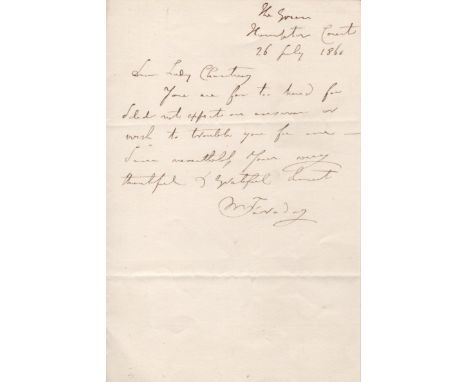 The Green
Hampton Court
26 July 186
Dear Lady
You are far too kind for
I did not expect an answer or
wish to trouble you for one —
Your very
thankful & grateful Servant
M Faraday